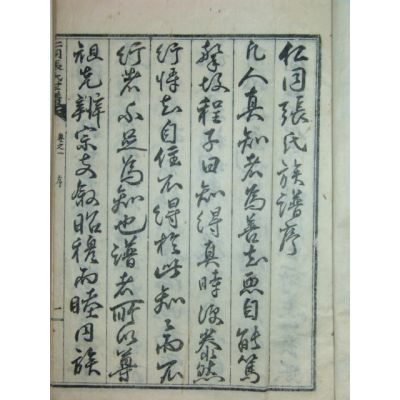 仁同張氏族譜序
凡人真知者為善去惡自能篤
摯故程子曰知得真時便泰然
行將去自住不得於此知而不
行者不足為知也譜者所以尊
祖先辨宗支敘昭穆而睦同族
仁同張氏世譜 卷之一 序 一